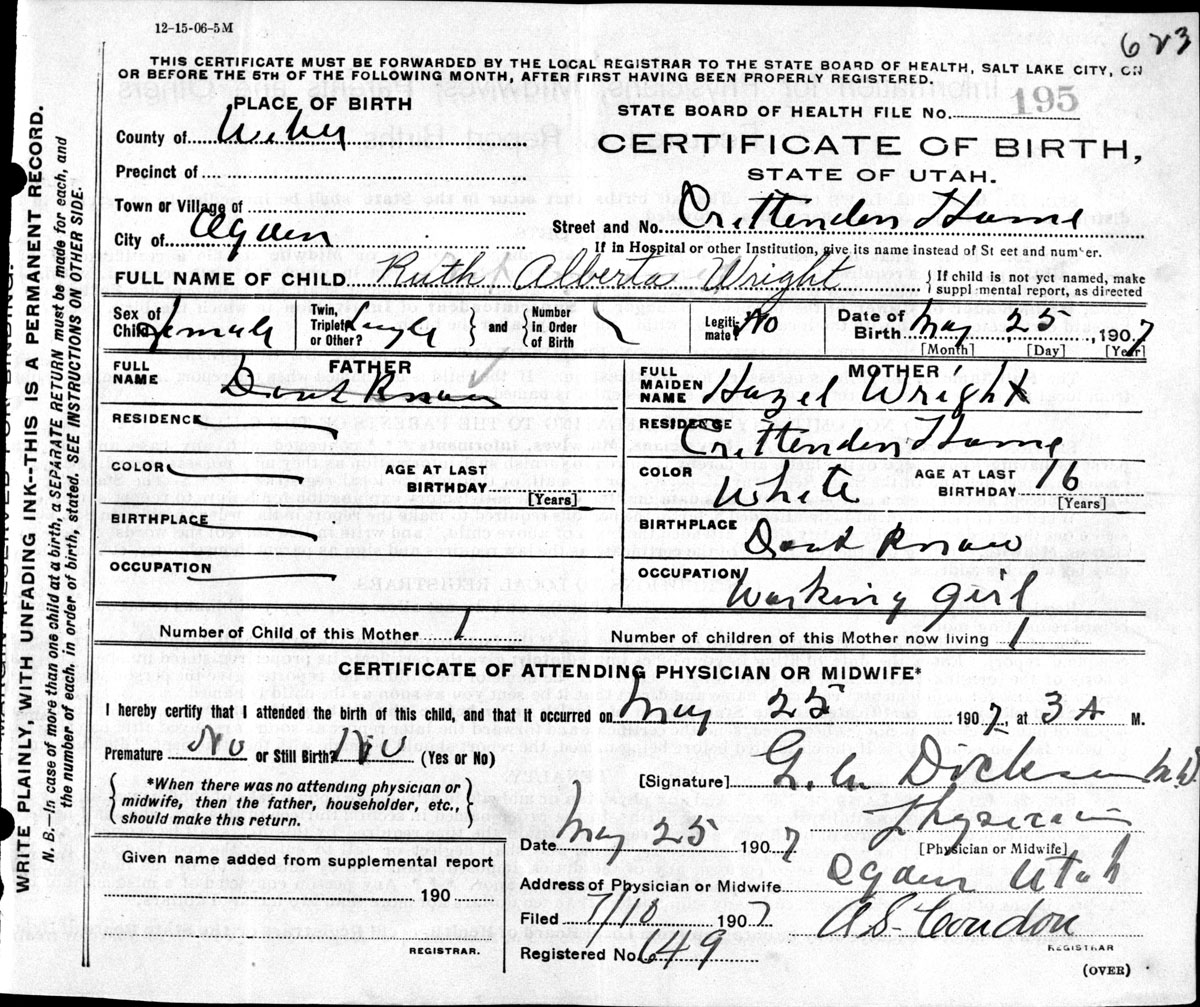 12–15–06–5M
623
THIS CERTIFICATE MUST BE FORWARDED BY THE LOCAL REGISTRAR TO THE STATE BOARD OF HEALTH, SALT LAKE CITY, ON
OR BEFORE THE 5TH OF THE FOLLOWING MONTH, AFTER FIRST HAVING BEEN PROPERLY REGISTERED.
WRITE PLAINLY WITH UNFADING INK—THIS IS A PERMANENT RECORD.
N. B.—In case of more than one child at a birth, a SEPARATE RETURN must be made for each, and
the number of each, in order of birth, stated. SEE INSTRUCTIONS ON OTHER SIDE.
PLACE OF BIRTH
County of Weber
Precinct of
Town or Village of
City of Ogden
STATE BOARD OF HEALTH FILE No. 195
CERTIFICATE OF BIRTH,
STATE OF UTAH.
Street and No. Crittenden Home
If in Hospital or other Institution, give its name instead of St eet and number.
FULL NAME OF CHILD Ruth Alberta Wright
If child is not yet named, make
suppl mental report, as directed
Sex of Child Female
Twin, Triplet or Other? Single
and Number in Order of Birth
Legitimate? No
Date of Birth May 25, 1907
[Month] [Day] [Year]
FATHER
FULL NAME Dont Know
RESIDENCE
COLOR
AGE AT LAST BIRTHDAY
[Years]
BIRTHPLACE
OCCUPATION
MOTHER
FULL MAIDEN NAME Hazel Wright
RESIDENCE Crittenden Home
COLOR White
AGE AT LAST BIRTHDAY 16
[Years]
BIRTHPLACE Dont Know
OCCUPATION Working girl
Number of Child of this Mother 1
Number of children of this Mother now living 1
CERTIFICATE OF ATTENDING PHYSICIAN OR MIDWIFE*
I hereby certify that I attended the birth of this child, and that it occurred on May 25 1907, at 3 A M.
Premature No or Still Birth? No (Yes or No)
*When there was no attending physician or
midwife, then the father, householder, etc.,
should make this return.
[Signature] Dickson M.D.
Physician
[Physician or Midwife]
Date May 25 1907
Given name added from supplemental report
190
REGISTRAR.
Address of Physician or Midwife Ogden Utah
Filed 7/10 1907
A.S. Condon
REGISTRAR
Registered No. 649
(OVER)